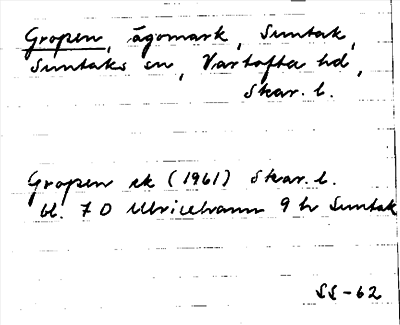 Gropen, ägomark, Suntak,
Suntaks sn, Vartofta hd,
Skar. l.
Gropen ek (1961) Skar. l.
bl. 7 D Ulricehamn 9 h Suntak
SS-62